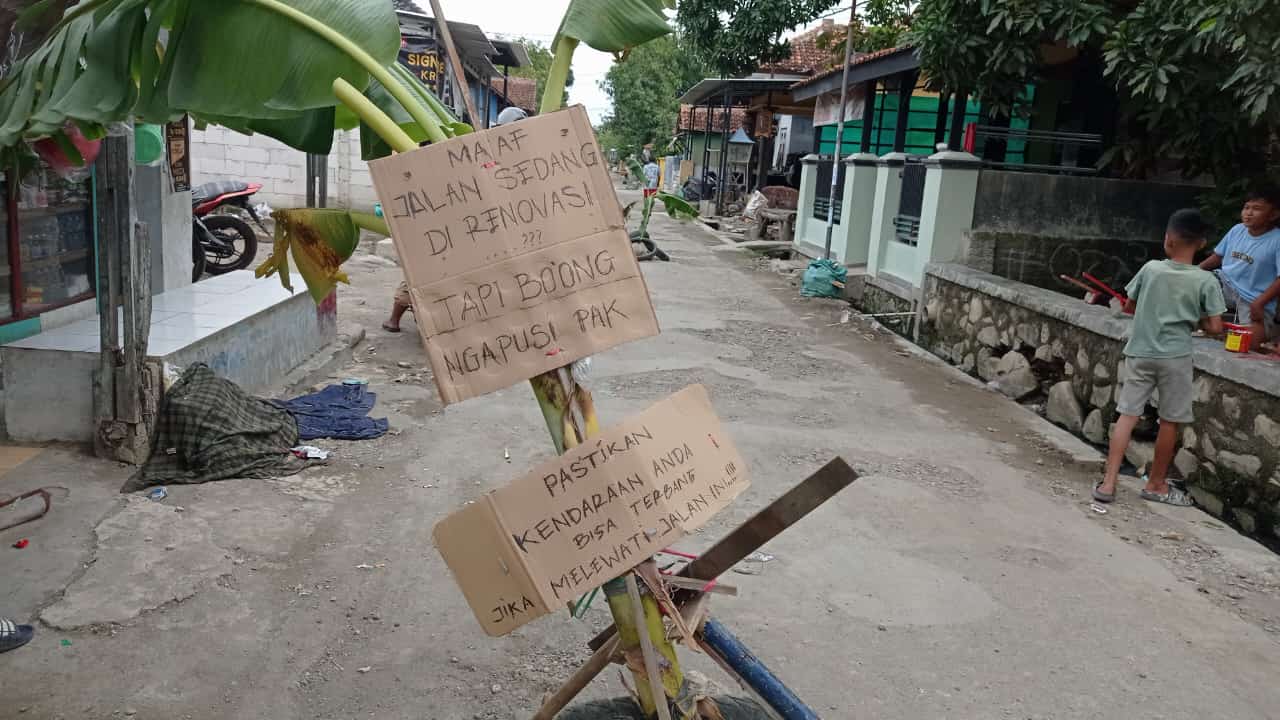 SIGN
KR
MAAF
JALAN SEDANG
DI RENOVASI
...???
TAPI BO'ONG
NGAPUSI PAK
PASTIKAN
KENDARAAN ANDA
BISA TERBANG
JIKA MELEWATI JALAN INI...!!!!